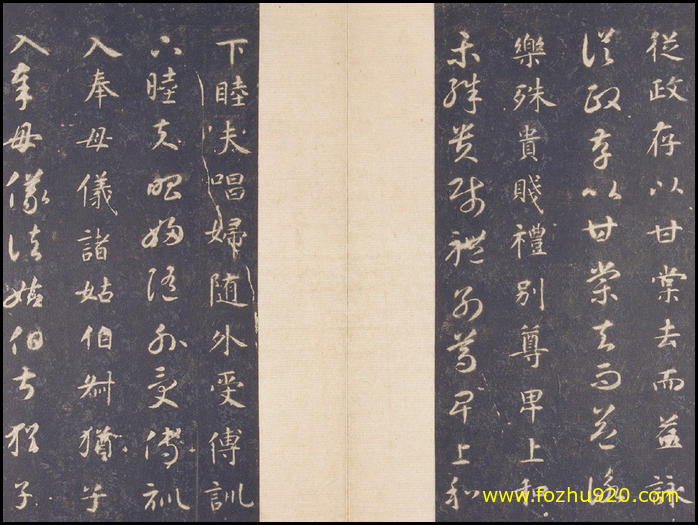 從政存以甘棠去而益詠
從政存以甘棠去而益詠
樂殊貴賤禮別尊卑上和
樂殊貴賤禮別尊卑上和
下睦夫唱婦随外受傅訓
下睦夫唱婦随外受傅訓
入奉母儀諸姑伯叔猶子
入奉母儀諸姑伯叔猶子
www.fozhu920.com